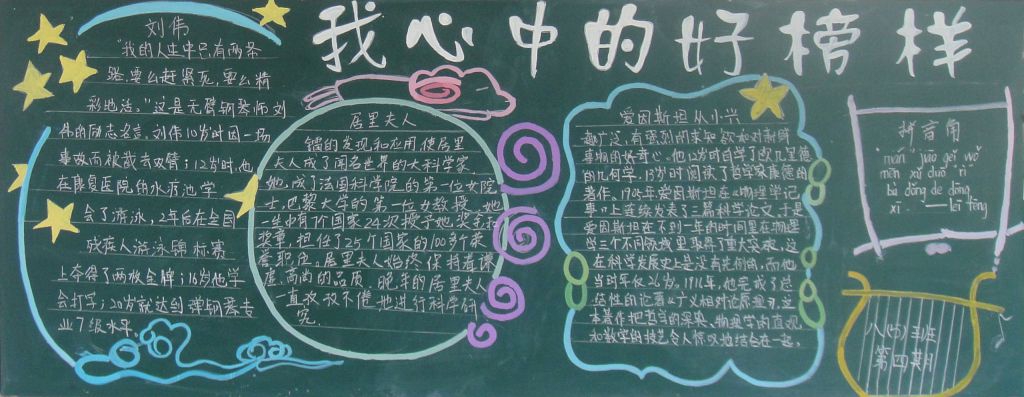 我心中的好榜样
刘伟
"我的人生中只有两条
路,要么赶紧死,要么精
彩地活。"这是无臂钢琴师刘
伟的励志名言。刘伟10岁时因一场
事故而被截去双臂；12岁时,他
在康复医院的水疗池学
会了游泳,2年后在全国
残疾人游泳锦标赛
上夺得了两枚金牌；16岁他学
会打字；20岁就达到弹钢琴专
业7级水平。
居里夫人
镭的发现和应用,使居里
夫人成了闻名世界的大科学家。
她,成了法国科学院的第一位女院
士,巴黎大学的第一位女教授。她
一生中有7个国家24次授予她奖金和
奖章,担任了25个国家的100多个荣
誉职位。居里夫人始终保持着谦
虚、高尚的品质。晚年的居里夫人
一直孜孜不倦地进行科学研
究。
爱因斯坦从小兴
趣广泛,有强烈的求知欲和对新鲜
事物的好奇心。他12岁时自学了欧几里德
的几何学,13岁时阅读了哲学家康德的
著作。1905年爱因斯坦在《物理学记
事》上连续发表了三篇科学论文,于是
爱因斯坦在不到一年的时间里在物理
学三个不同领域里取得了重大突破,这
在科学发展史上是没有先例的,而他
当时年仅26岁。1916年,他完成了总
结性的论著《广义相对论原理》,这
本著作把哲学的深奥、物理学的直观
和数学的技艺令人惊叹地结合在一起。
拼音角
"mán jiāo gěi wǒ
mēn xǔ duō rì
bù dǒng de dōng
xī. ——lěi fēng
八(5)班
第四期